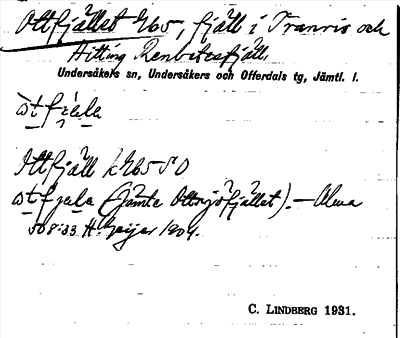 Ottfjället 265, fjäll i Tranris och
Hitting Renbetesfjäll.
Undersåkers sn, Undersåkers och Offerdals tg, Jämtl. l.
Ottfjäll k 265 SO
(Jämte Ottsjöfjället). — Alma
508:33 H. Geijer 1909.
C. LINDBERG 1931.